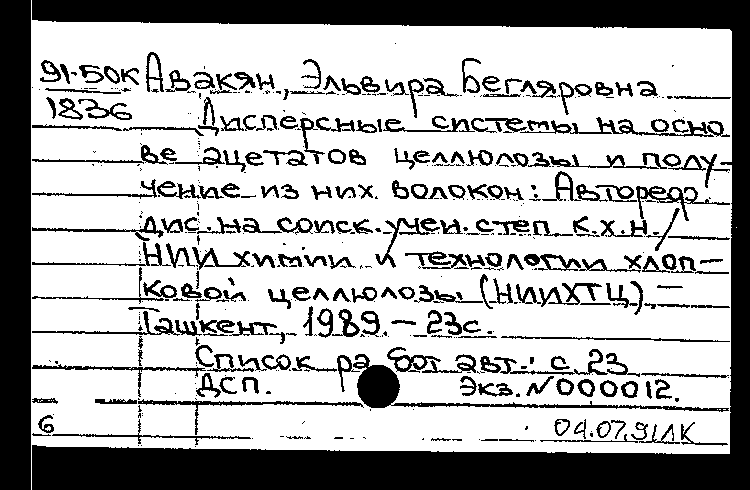 91-50К Авакян, Эльвира Бегляровна
1836 Дисперсные системы на осно
ве ацетатов целлюлозы и полу-
чение из них волокон: Автореф.
дис. на соиск. учен. степ. к.х.н. /
НИИ химии и технологии хлоп-
ковой целлюлозы (НИИХТЦ). —
Ташкент, 1989. — 23с.
Список работ авт.: с. 23
ДСП. Экз. N 000012.
6 04.07.91ЛК